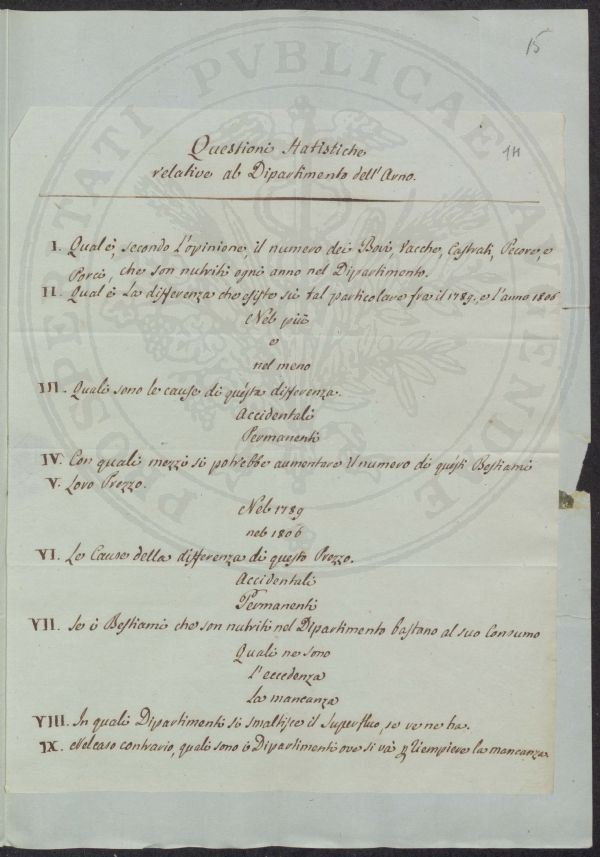 15
14
Questioni Statistiche
relative al Dipartimento dell'Arno.
I. Qual è, secondo l'opinione, il numero dei Bovi, Vacche, Castrati, Pecore, e
Porci, che son nutriti ogni anno nel Dipartimento.
II. Qual è la differenza che esiste su tal particolare fra il 1789., e l'anno 1806
Nel più
o
nel meno
III. Quali sono le cause di questa differenza.
Accidentali
Permanenti
IV. Con quali mezzi si potrebbe aumentare il numero di questi Bestiami
V. Loro Prezzo.
Nel 1789
nel 1806
VI. Le Cause della differenza di questo Prezzo.
Accidentali
Permanenti
VII. Se i Bestiami che son nutriti nel Dipartimento bastano al suo Consumo
Quali ne sono
L'eccedenza
La mancanza
VIII. In quali Dipartimenti si smaltisce il superfluo, se ve ne ha.
IX. Nel caso contrario, quali sono i Dipartimenti ove si và p riempiere la mancanza.
PROSPERITATI PVBLICAE AVGENDAE